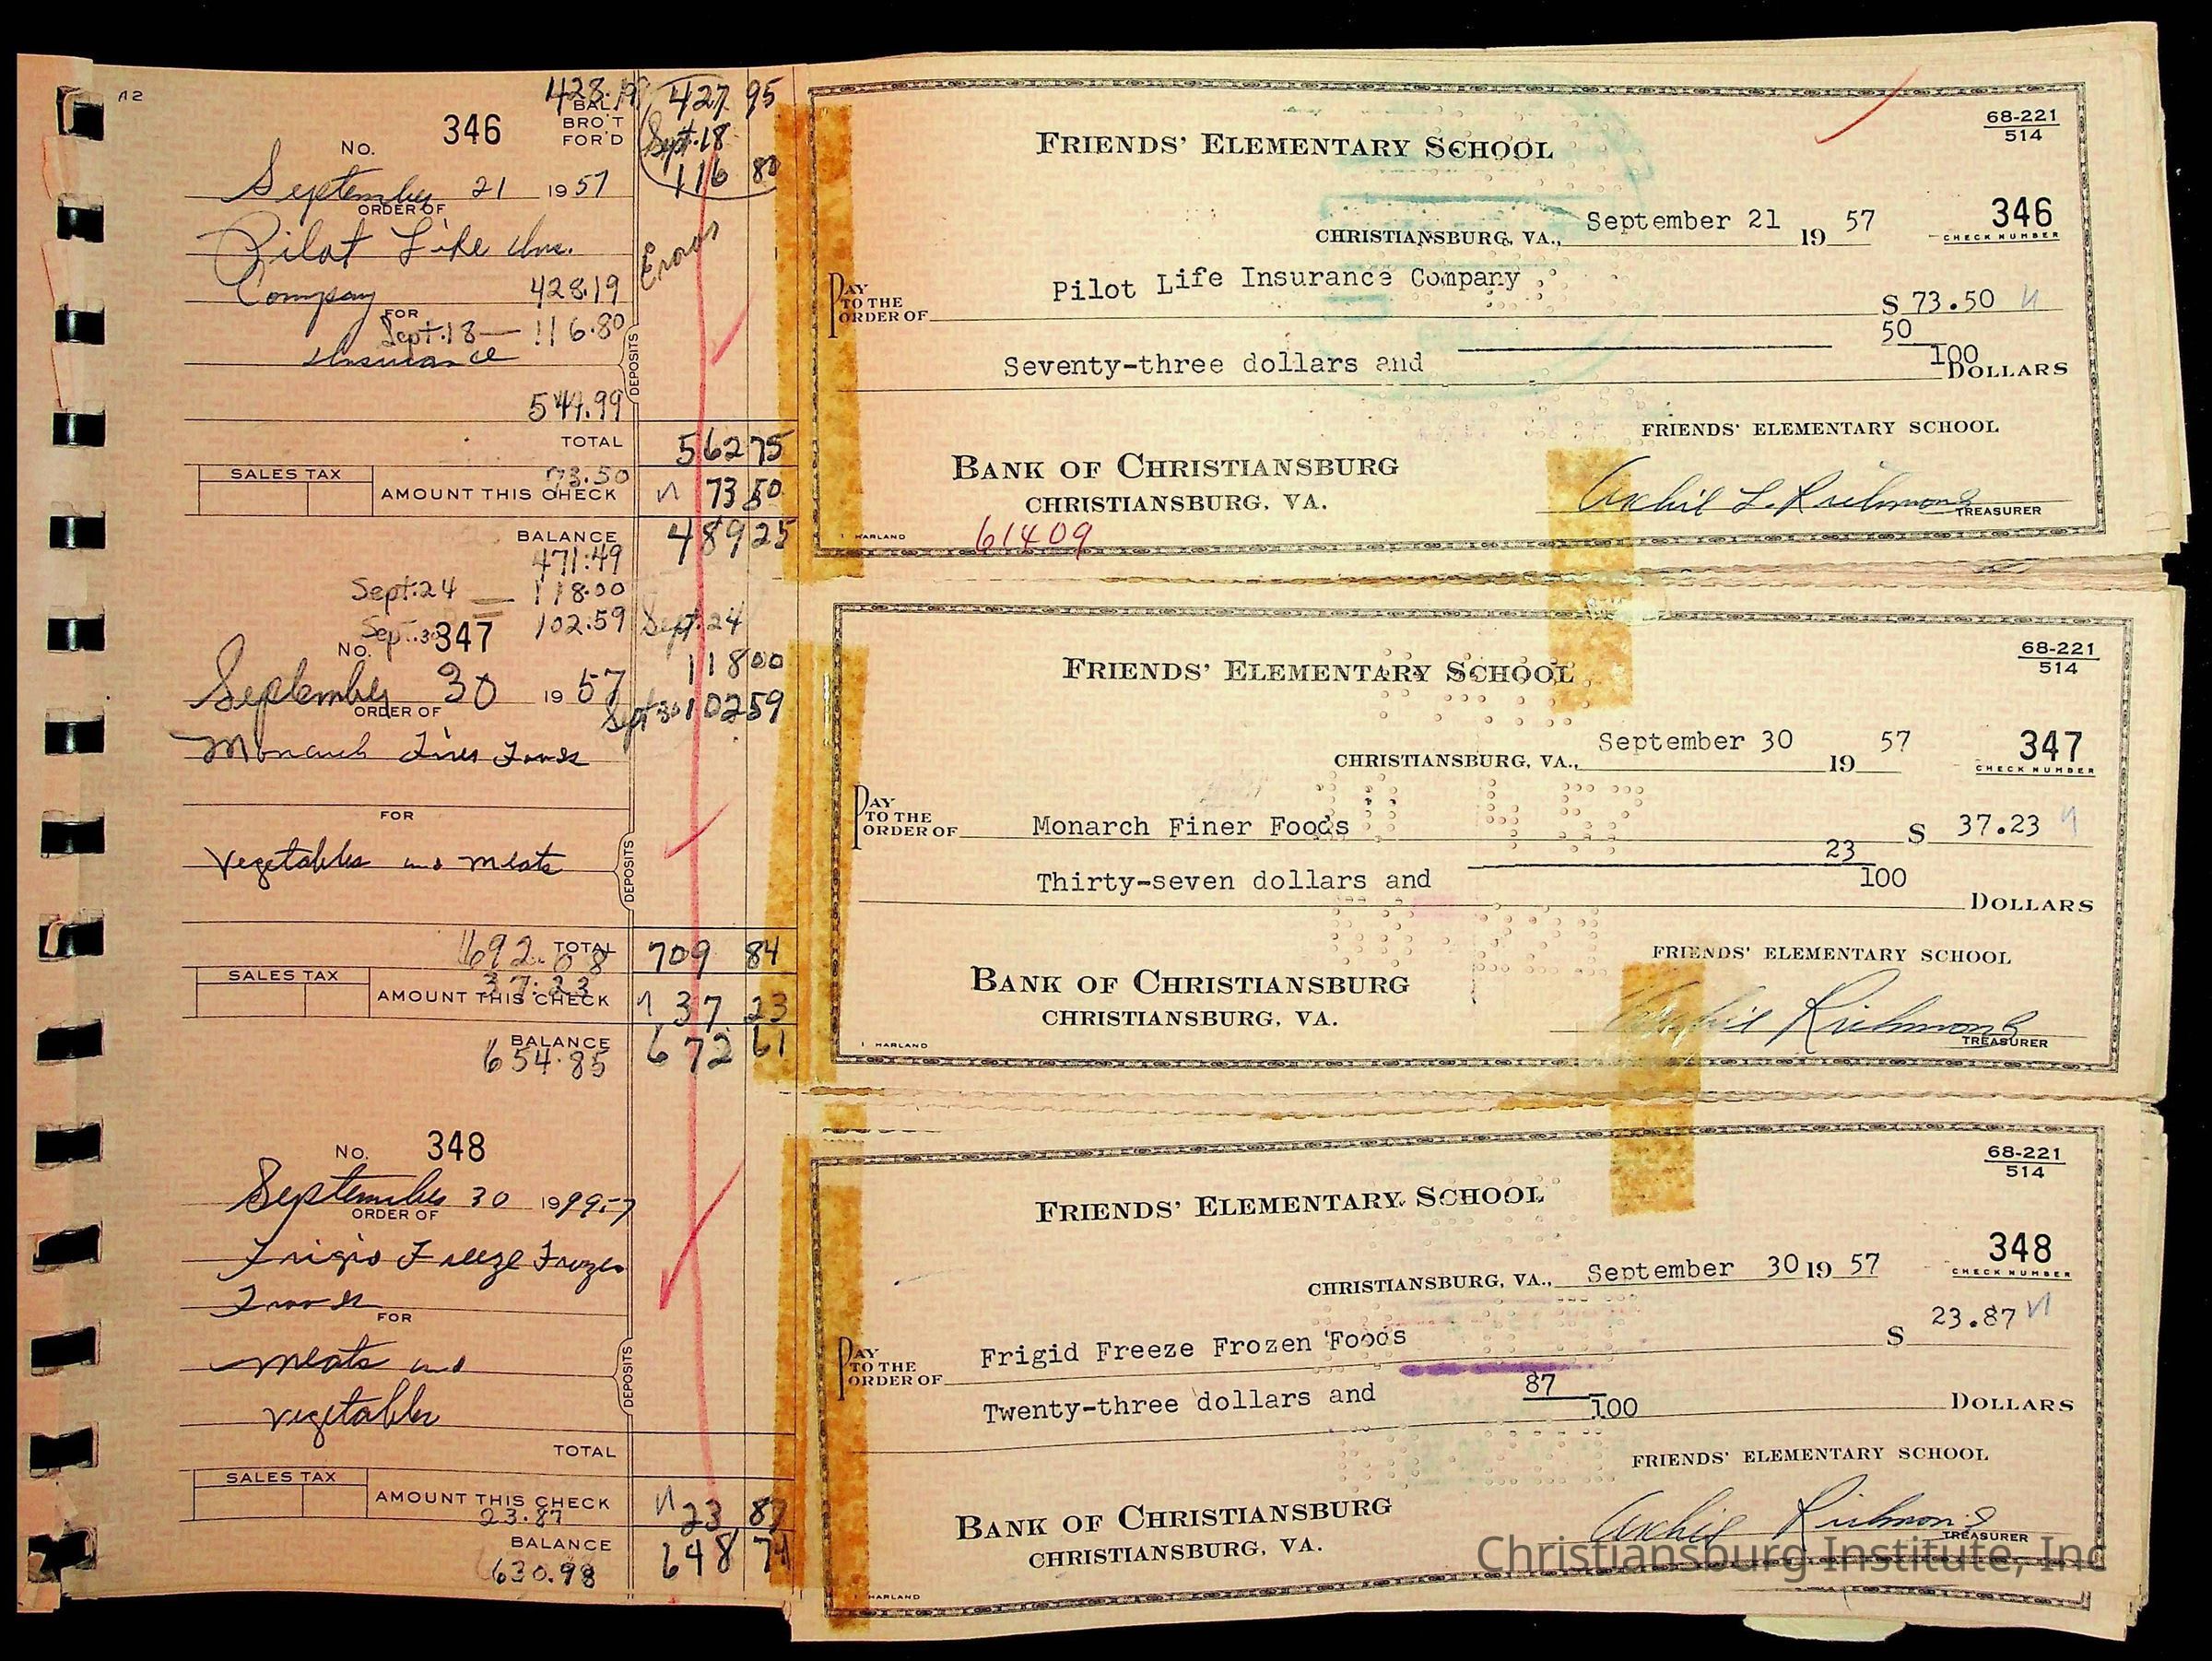 No. 346
428.19
BAL. BRO'T FOR'D
427 95
Sept. 18
116 80
September 21 1957
ORDER OF
Pilot Life Ins.
Company
428.19
FOR
Sept. 18 — 116.80
Insurance
DEPOSITS
544.99
TOTAL 562 75
SALES TAX
73.50
AMOUNT THIS CHECK 73 50
BALANCE 489 25
471.49
Sept. 24 — 118.00
Sept. 30 102.59
Sept. 24
118 00
Sept 30 102 59
No. 347
September 30 1957
ORDER OF
Monarch Finer Foods
FOR
Vegetables and meats
DEPOSITS
692.08
TOTAL 709 84
SALES TAX
37.23
AMOUNT THIS CHECK 37 23
BALANCE 672 61
654.85
No. 348
September 30 19
ORDER OF
Frigid Freeze Frozen
Foods
FOR
meats and
vegetables
DEPOSITS
TOTAL
SALES TAX
AMOUNT THIS CHECK 23 87
23.87
BALANCE 648 74
630.98
FRIENDS' ELEMENTARY SCHOOL
68-221
514
CHRISTIANSBURG, VA., September 21 19 57
346
CHECK NUMBER
PAY TO THE ORDER OF Pilot Life Insurance Company $ 73.50
Seventy-three dollars and 50/100 DOLLARS
FRIENDS' ELEMENTARY SCHOOL
BANK OF CHRISTIANSBURG
CHRISTIANSBURG, VA.
Archie L. Richmond
TREASURER
HARLAND
61409
FRIENDS' ELEMENTARY SCHOOL
68-221
514
CHRISTIANSBURG, VA., September 30 19 57
347
CHECK NUMBER
PAY TO THE ORDER OF Monarch Finer Foods $ 37.23
Thirty-seven dollars and 23/100
DOLLARS
FRIENDS' ELEMENTARY SCHOOL
BANK OF CHRISTIANSBURG
CHRISTIANSBURG, VA.
Archie Richmond
TREASURER
HARLAND
FRIENDS' ELEMENTARY SCHOOL
68-221
514
CHRISTIANSBURG, VA., September 30 19 57
348
CHECK NUMBER
PAY TO THE ORDER OF Frigid Freeze Frozen Foods $ 23.87
Twenty-three dollars and 87/100 DOLLARS
FRIENDS' ELEMENTARY SCHOOL
BANK OF CHRISTIANSBURG
CHRISTIANSBURG, VA.
Archie Richmond
TREASURER
HARLAND
Christiansburg Institute, Inc